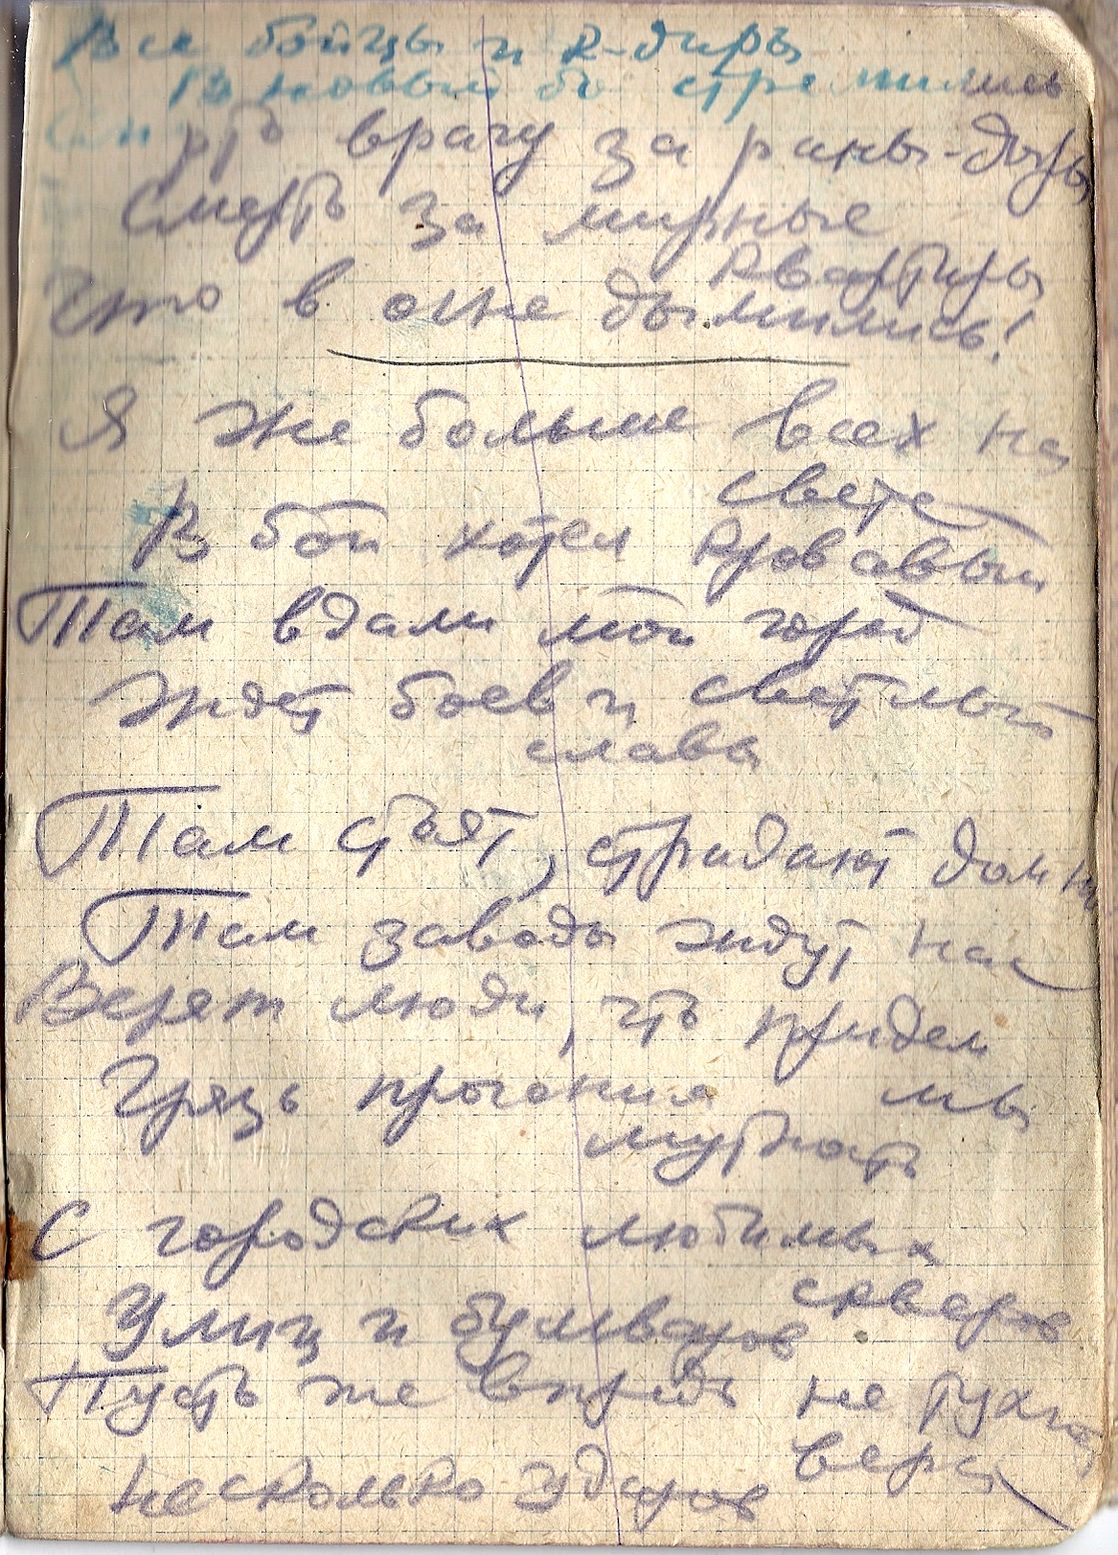 Все бойцы и к-диры
В новый бой стремились
врагу за раны-дыры
Смерть за мирные
квартиры
Что в огне дымились!
Я же больше всех на
свете
В бой хотел кровавый
Там вдали мой город
Ждет боев и светлый
славы
Там стоят, страдают домны
Там заводы ждут нас
Верят люди, что придем
мы
Грязь прогоним
С городских любимых
скверов
Улиц и бульваров
Пусть же впредь не тухнет
вера
Несколько ударов